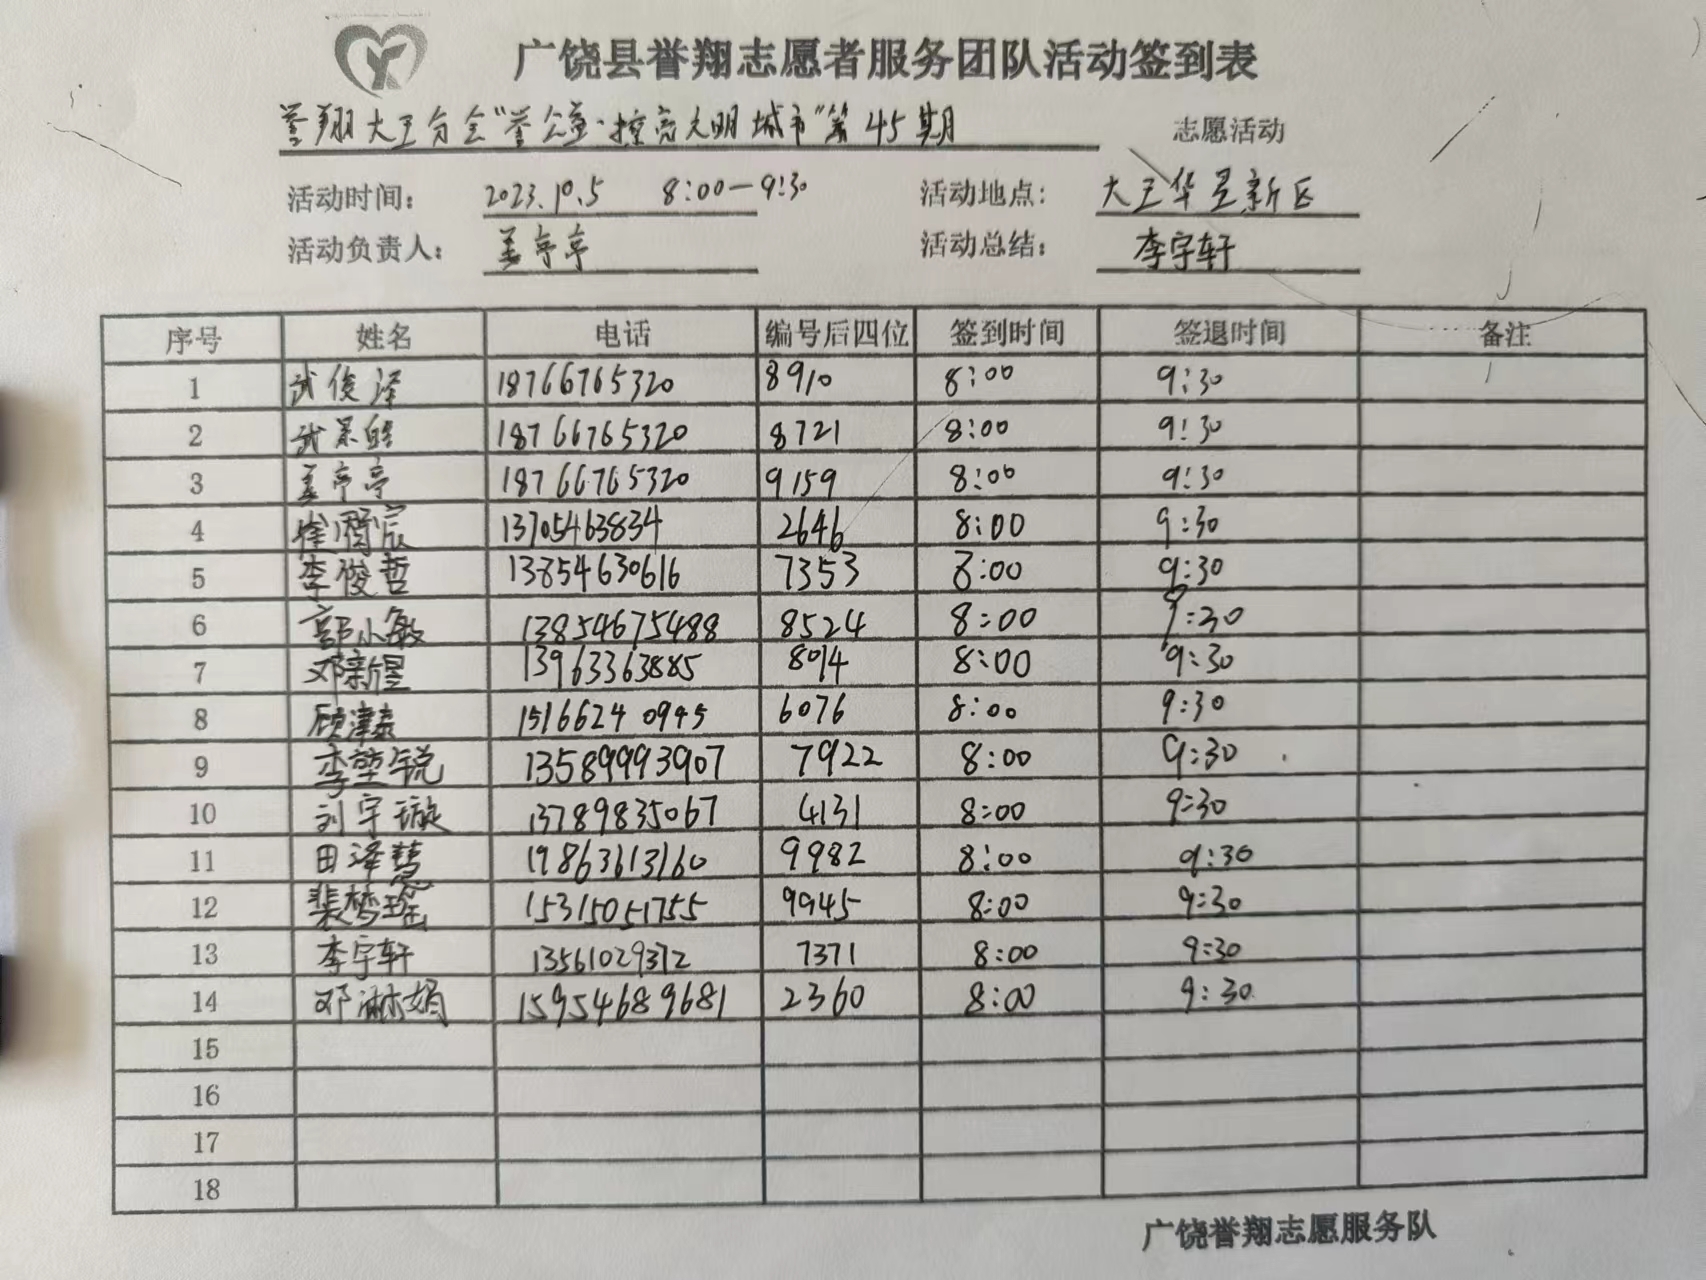 广饶县誉翔志愿者服务团队活动签到表
誉翔大王分会"誉公益·擦亮文明城市"第45期 志愿活动
活动时间： 2023.10.5 8:00—9:30 活动地点： 大王华星新区
活动负责人： 姜亭亭 活动总结： 李宇轩
序号 姓名 电话 编号后四位 签到时间 签退时间 备注
1 武俊泽 18766765320 8910 8:00 9:30
2 武 18766765320 8721 8:00 9:30
3 姜亭亭 18766765320 9159 8:00 9:30
4 宸 13705463834 2646 8:00 9:30
5 李俊哲 13854630616 7353 8:00 9:30
6 郭小敏 13854675488 8524 8:00 9:30
7 邓新星 13963363885 8014 8:00 9:30
8 顾津泰 15166240945 6076 8:00 9:30
9 李堃锐 13589993907 7922 8:00 9:30
10 刘宇璇 13789835067 4131 8:00 9:30
11 田泽慧 19863613160 9982 8:00 9:30
12 裴梦瑶 15315051755 9945 8:00 9:30
13 李宇轩 13561029372 7371 8:00 9:30
14 邓淋娟 15954689681 2360 8:00 9:30
15
16
17
18
广饶誉翔志愿服务队